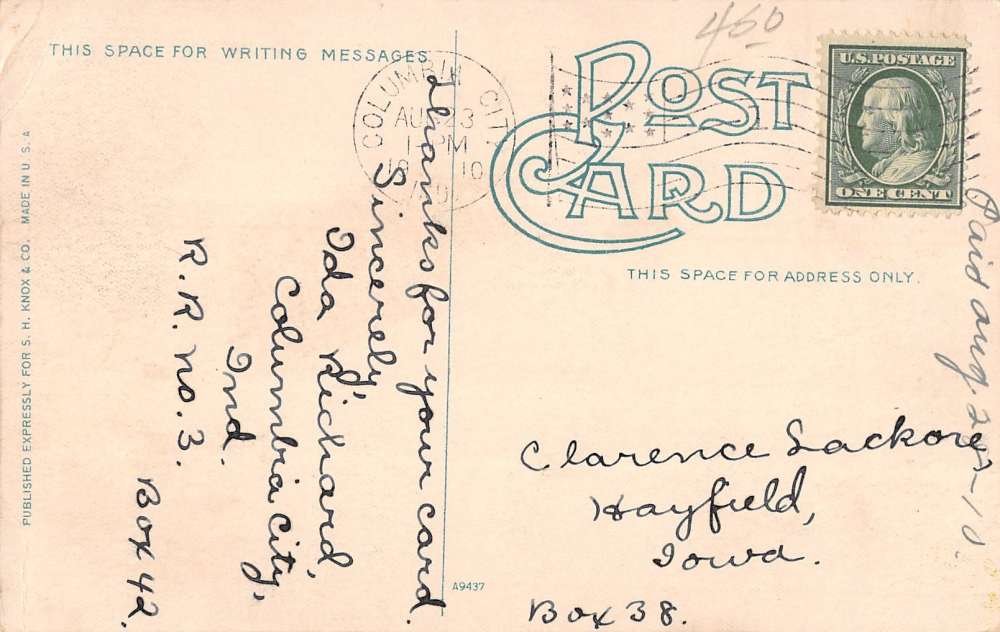 460
THIS SPACE FOR WRITING MESSAGES.
POST
CARD
THIS SPACE FOR ADDRESS ONLY.
COLUMBIA CITY
AUG 23
1 - PM
1910
IND
U.S. POSTAGE
ONE CENT
Thanks for your card.
Sincerely,
Ida Richard,
Columbia City,
Ind.
R.R. No. 3.
Box 42.
Clarence Lackore
Hayfield,
Iowa.
Box 38.
PUBLISHED EXPRESSLY FOR S. H. KNOX & CO. MADE IN U. S. A
A9437